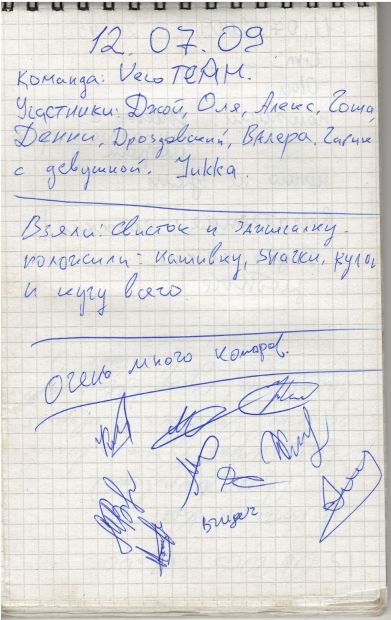 12.07.09
Команда: Veco TEAM.
Участники: Джой, Оля, Алекс, Гоша
Денни, Дроздовский, Валера. Гагик
с девушкой. Jukka.
Взяли: свисток и
положили: нашивку, значки,
и кучу всего
Очень много комаров.